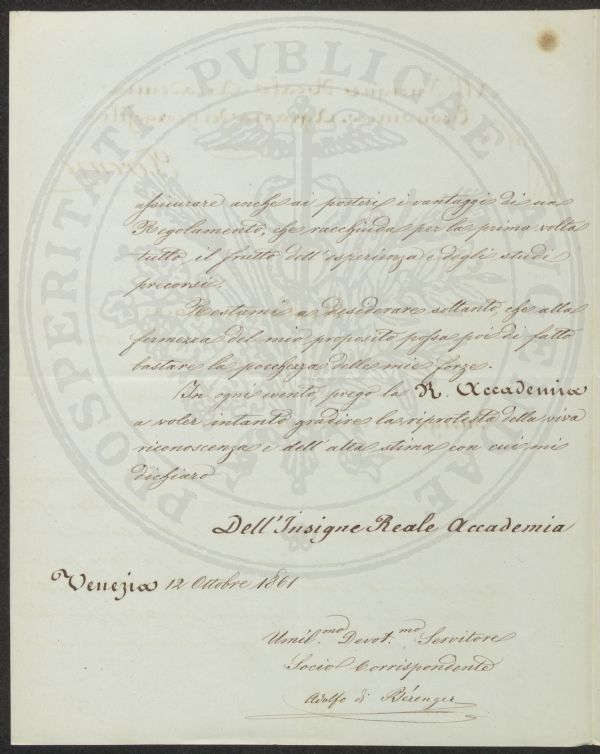 PROSPERITATI PVBLICAE AVGENDAE
assicurare anche ai posteri i vantaggi di un
Regolamento, che racchiuda per la prima volta
tutto il frutto dell'esperienza e degli studi
precorsi.
Restami a desiderare soltanto, che alla
fermezza del mio proposito possa poi di fatto
bastare la pochezza delle mie forze.
In ogni evento prego la R. Accademia
a voler intanto gradire la riprotesta della viva
riconoscenza e dell'alta stima con cui mi
dichiaro
Dell'Insigne Reale Accademia
Venezia 12 Ottobre 1861
Umil.mo Devot.mo Servitore
Socio Corrispondente
Adolfo di Bérenger